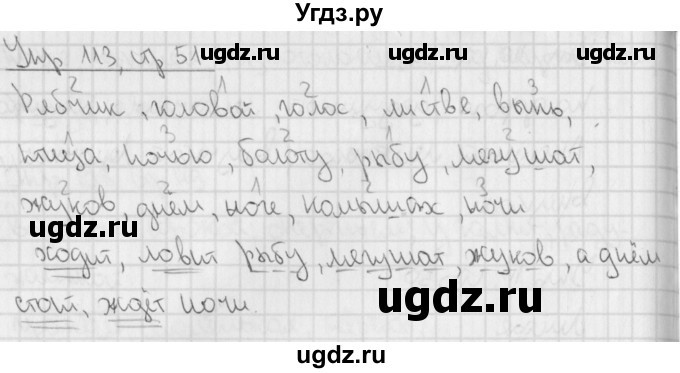 Угдз.ру
Упр 113, стр 51
ugdz.ru ugdz.ru
2 1 2 1 3
Рябчик, головой, голос, листве, выпь,
1 3 2 1 2
птица, ночью, болоту, рыбу, лягушат,
2 2 1 2 3
жуков, днём, ноге, камышах, ночи
ugdz.ru ugdz.ru
ходит, ловит рыбу, лягушат, жуков, а днём
ugdz.ru
стоит, ждёт ночи.
ugdz.ru